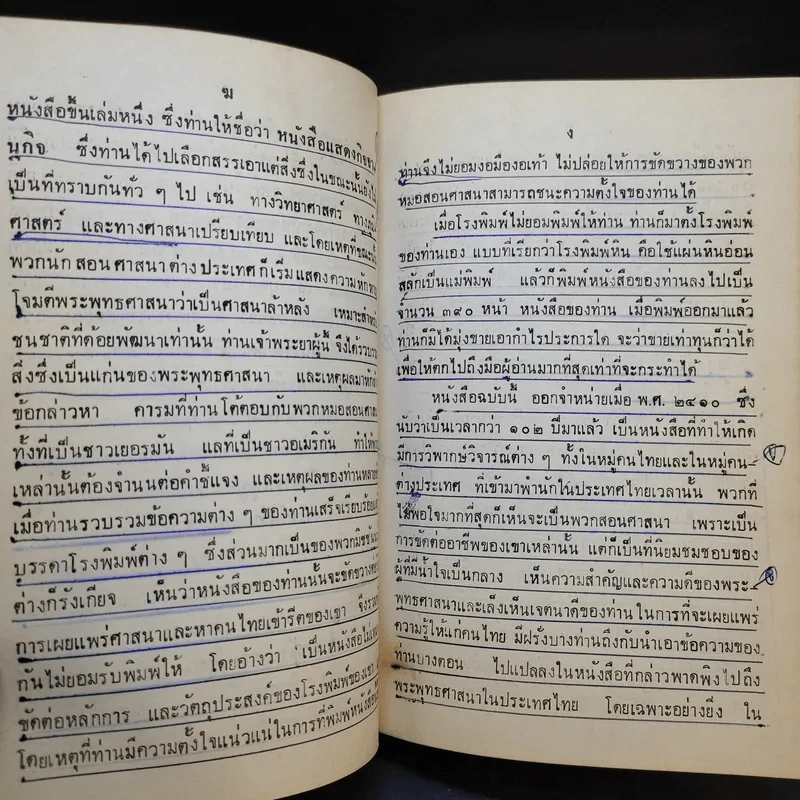 ฆ
หนังสือขึ้นเล่มหนึ่ง ซึ่งท่านให้ชื่อว่า หนังสือแสดงกิจจา
นุกิจ ซึ่งท่านได้ไปเลือกสรรเอาแต่สิ่งซึ่งในขณะนั้นยังไ
เป็นที่ทราบกันทั่ว ๆ ไป เช่น ทางวิทยาศาสตร์
ศาสตร์ และทางศาสนาเปรียบเทียบ และโดยเหตุที่ขณะนั้
พวกนักสอนศาสนาต่างประเทศก็เริ่มแสดงความหัก
โจมตีพระพุทธศาสนาว่าเป็นศาสนาล้าหลัง เหมาะสำหรั
ชนชาติที่ด้อยพัฒนาเท่านั้น ท่านเจ้าพระยาผู้นี้ จึงได้รวบร
สิ่งซึ่งเป็นแก่นของพระพุทธศาสนา และเหตุผลมาหักล้
ข้อกล่าวหา คารมที่ท่านโต้ตอบกับพวกหมอสอนศาส
ทั้งที่เป็นชาวเยอรมัน แลที่เป็นชาวอเมริกัน ทำให้
เหล่านั้นต้องจำนนต่อคำชี้แจง และเหตุผลของท่านหลาย
เมื่อท่านรวบรวมข้อความต่าง ๆ ของท่านเสร็จเรียบร้อยแ
บรรดาโรงพิมพ์ต่าง ๆ ซึ่งส่วนมากเป็นของพวกมิชชัน
ต่างก็รังเกียจ เห็นว่าหนังสือของท่านนั้นจะขัดขวางต่
การเผยแพร่ศาสนาและหาคนไทยเข้ารีตของเขา จึงรวม
กันไม่ยอมรับพิมพ์ให้ โดยอ้างว่า เป็นหนังสือไม่
ขัดต่อหลักการ และวัตถุประสงค์ของโรงพิมพ์ของเขา
โดยเหตุที่ท่านมีความตั้งใจแน่วแน่ในการที่พิมพ์หนังสือ
ง
ท่านจึงไม่ยอมงอมืองอเท้า ไม่ปล่อยให้การขัดขวางของพวก
หมอสอนศาสนาสามารถชนะความตั้งใจของท่านได้
เมื่อโรงพิมพ์ไม่ยอมพิมพ์ให้ท่าน ท่านก็มาตั้งโรงพิมพ์
ของท่านเอง แบบที่เรียกว่าโรงพิมพ์หิน คือใช้แผ่นหินอ่อน
สลักเป็นแม่พิมพ์ แล้วก็พิมพ์หนังสือของท่านลงไปเป็น
จำนวน ๓๙๐ หน้า หนังสือของท่าน เมื่อพิมพ์ออกมาแล้ว
ท่านก็มิได้มุ่งขายเอากำไรประการใด จะว่าขายเท่าทุนก็ว่าได้
เพื่อให้ตกไปถึงมือผู้อ่านมากที่สุดเท่าที่จะกระทำได้
หนังสือฉบับนี้ ออกจำหน่ายเมื่อ พ.ศ. ๒๔๑๐ ซึ่ง
นับว่าเป็นเวลากว่า ๑๐๒ ปีมาแล้ว เป็นหนังสือที่ทำให้เกิด
มีการวิพากษ์วิจารณ์ต่าง ๆ ทั้งในหมู่คนไทยและในหมู่คน
ต่างประเทศ ที่เข้ามาพำนักในประเทศไทยเวลานั้น พวกที่
ไม่พอใจมากที่สุดก็เห็นจะเป็นพวกสอนศาสนา เพราะเป็น
การขัดต่ออาชีพของเขาเหล่านั้น แต่ก็เป็นที่นิยมชมชอบของ
ผู้ที่มีน้ำใจเป็นกลาง เห็นความสำคัญและความดีของพระ-
พุทธศาสนาและเล็งเห็นเจตนาดีของท่าน ในการที่จะเผยแพร่
ความรู้ให้แก่คนไทย มีฝรั่งบางท่านถึงกับนำเอาข้อความของ
ท่านบางตอน ไปแปลลงในหนังสือที่กล่าวพาดพิงไปถึง
พระพุทธศาสนาในประเทศไทย โดยเฉพาะอย่างยิ่ง ใน